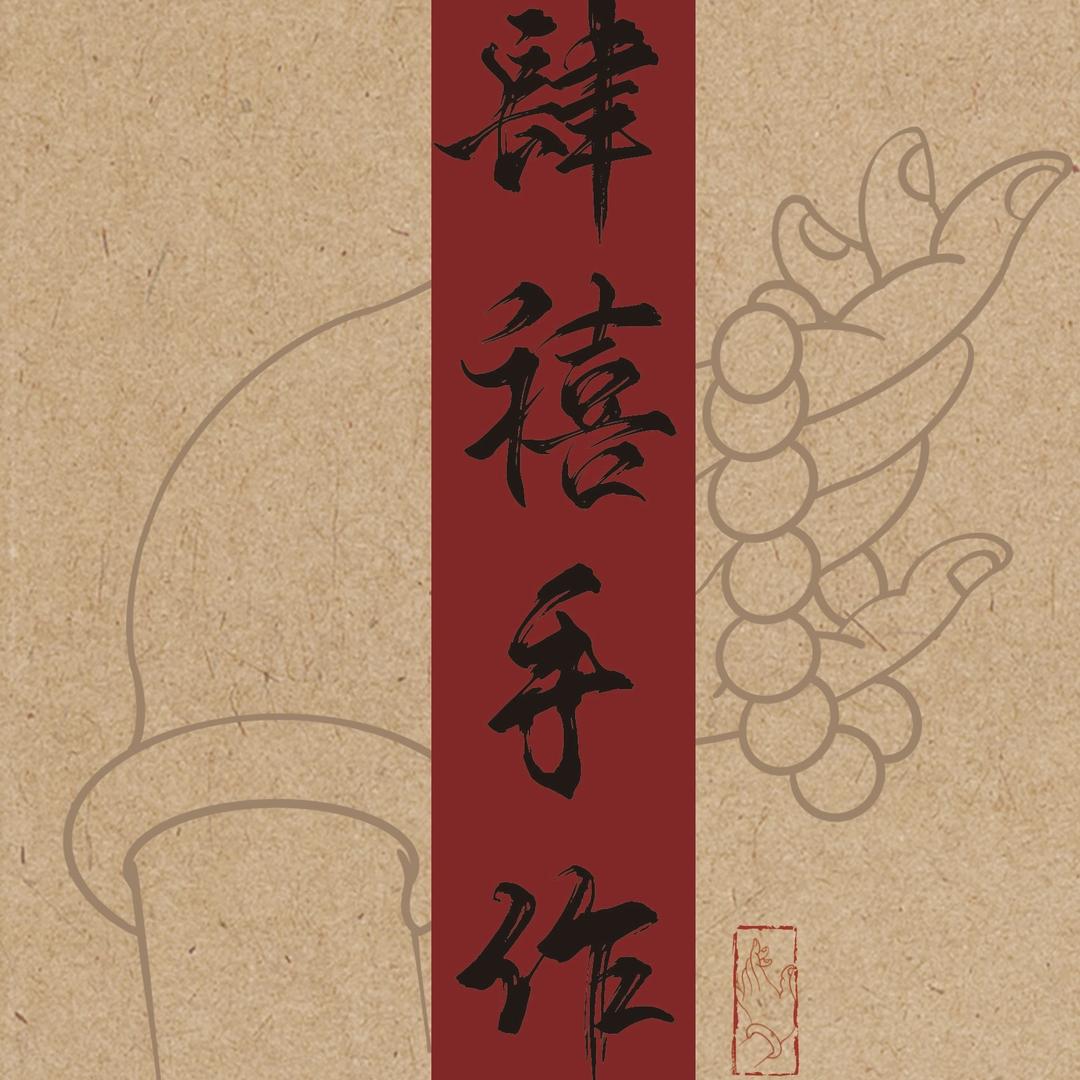 肆禧手作